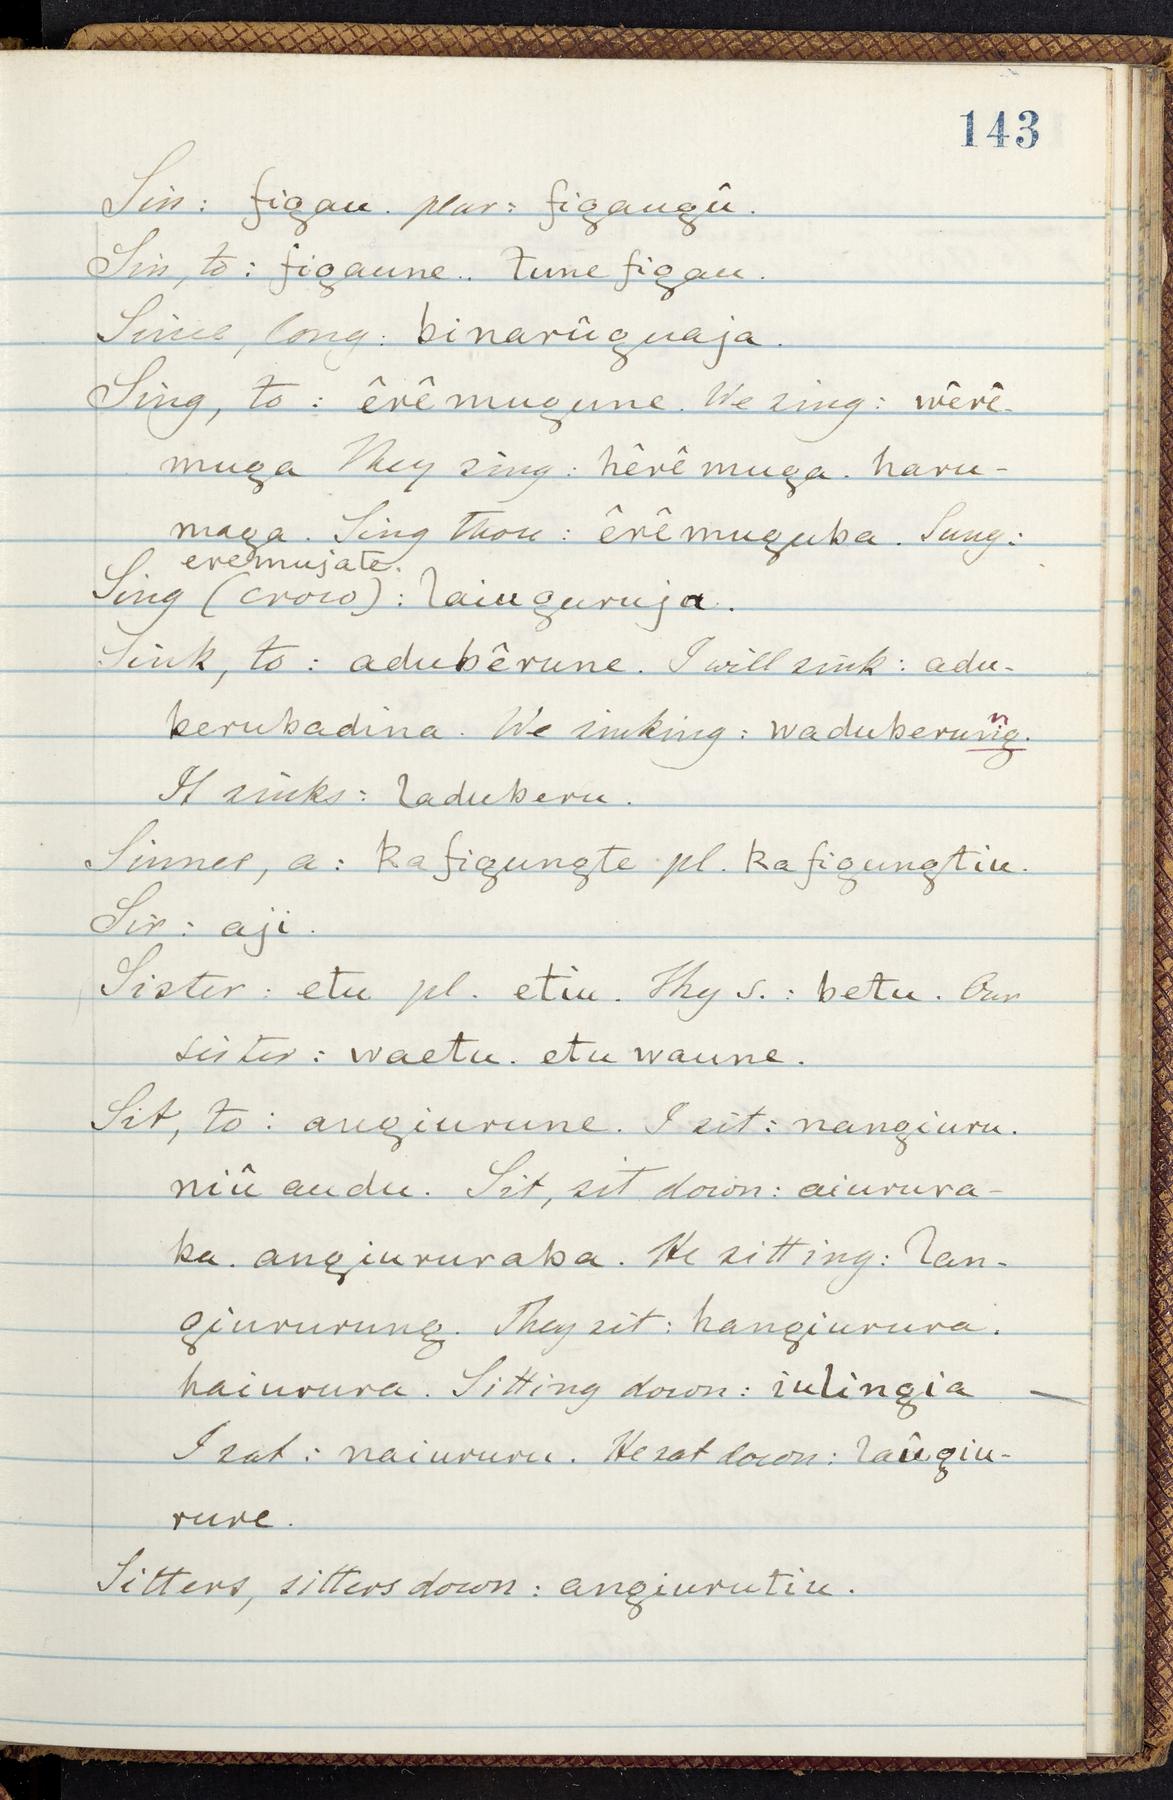 143
Sin: figau. plur: figaugû.
Sin, to: figaune.. tune figau.
Since, long: binarûguaja.
Sing, to: êrêmugune. We sing: wêrê-
muga They sing: hêrêmuga. haru-
maga. Sing thou: êrêmuguba. Sung:
eremujate.
Sing (crow): laiuguruja.
Sink, to: adubêrune. I will sink: adu-
berubadina. We sinking: waduberuñg.
It sinks: laduberu.
Sinner, a: kafigungte pl. kafigungtiu.
Sir: aji.
Sister: etu pl. etiu. Thy s.: betu. Our
sister: waetu. etu waune.
Sit, to: angiurune. I sit: nangiuru.
niû audu. Sit, sit down: aiurura-
ba. angiururaba. He sitting: lan-
giururung. They sit: hangiurura.
haiurura. Sitting down: iulingia —
I sat: naiururu. He sat down: laûgiu-
rure.
Sitters, sitters down: angiurutiu.